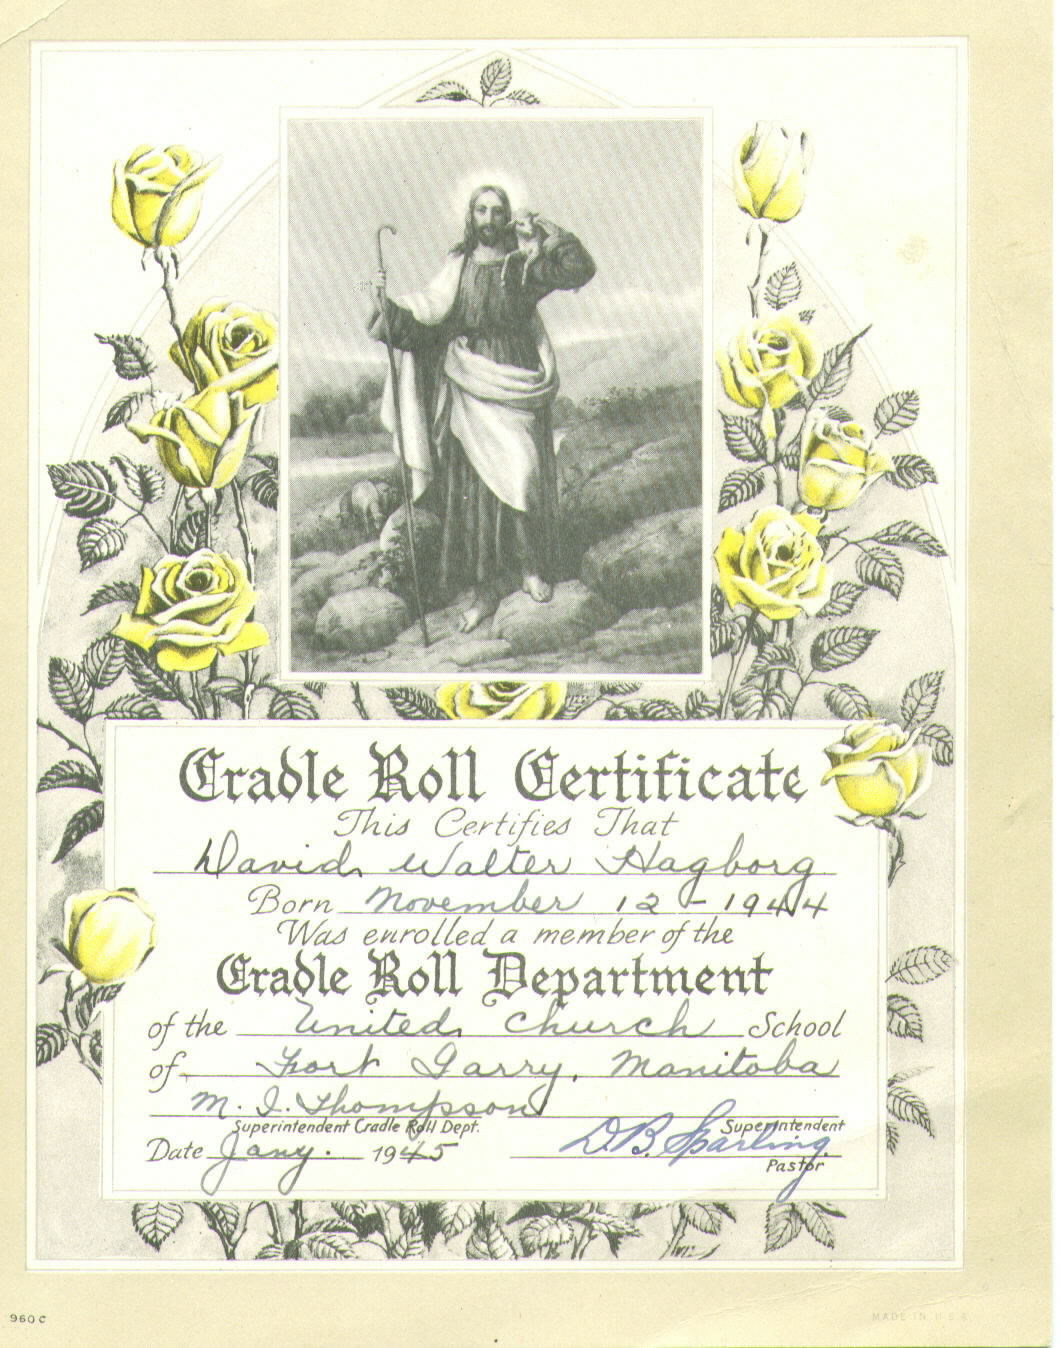 Cradle Roll Certificate
This Certifies That
David Walter Hagborg
Born November 12 - 1944
Was enrolled a member of the
Cradle Roll Department
of the United Church School
of Fort Garry, Manitoba
M. I. Thompson
Superintendent Cradle Roll Dept. Superintendent
Date Jany. 1945 D.B. Sparling
Pastor
960 C MADE IN U.S.A.